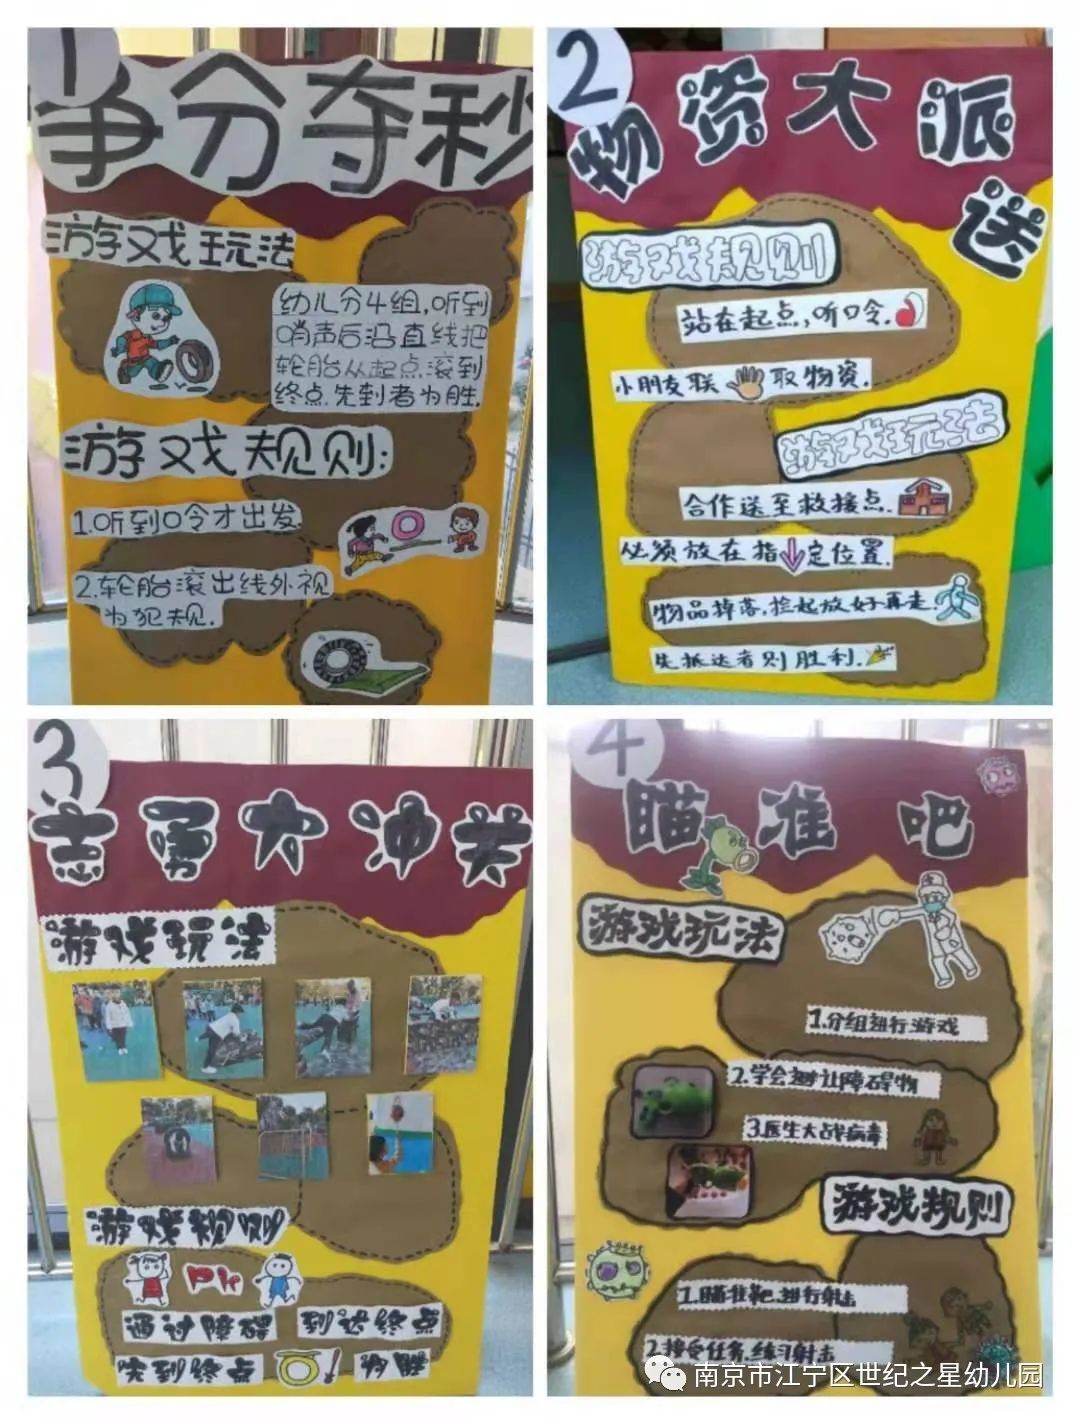 1
争分夺秒
游戏玩法
幼儿分4组,听到
哨声后沿直线把
轮胎从起点滚到
终点.先到者为胜.
游戏规则:
1.听到口令才出发.
2.轮胎滚出线外视
为犯规.
2
物资大派
送
游戏规则
站在起点,听口令.
小朋友联 取物资.
游戏玩法
合作送至救援点.
必须放在指 定位置.
物品掉落,捡起放好再走.
先抵达者则胜利.
3
志勇大冲关
游戏玩法
游戏规则
PK
通过障碍 到达终点
先到终点 为胜
4
瞄准吧
游戏玩法
1.分组进行游戏
2.学会避让障碍物
3.医生大战病毒
游戏规则
1.瞄准靶,进行射击
2.接受任务,练习射击
南京市江宁区世纪之星幼儿园